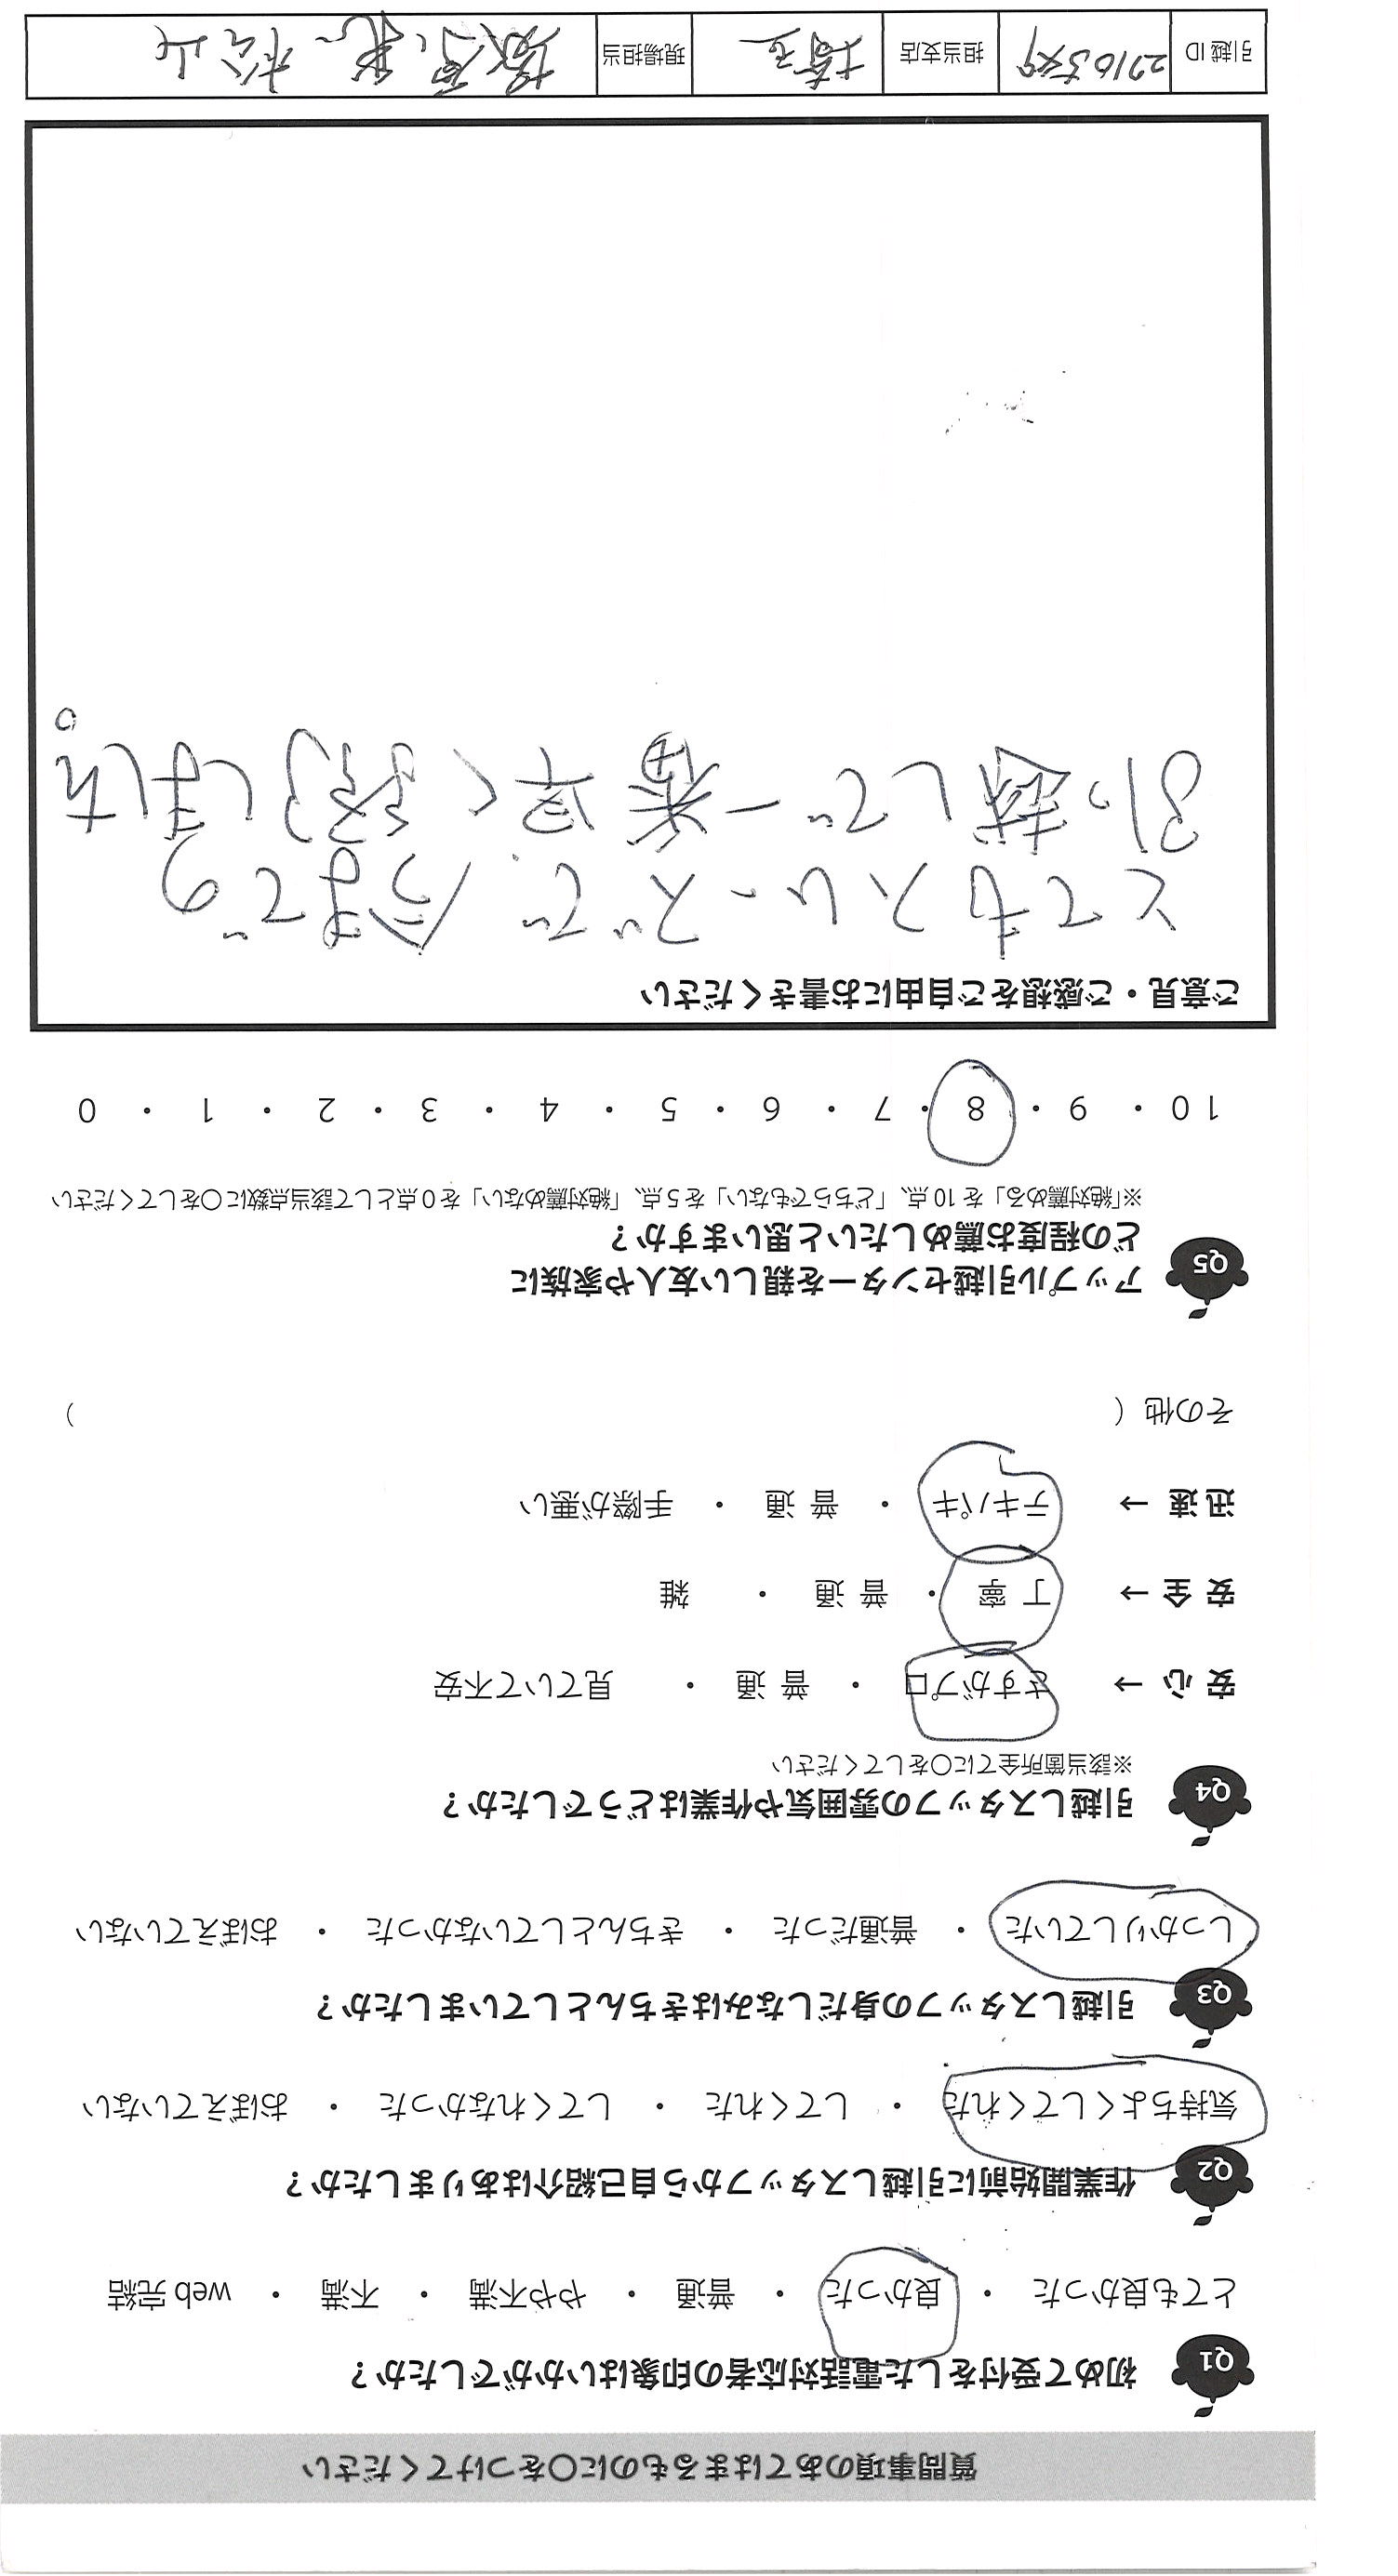 質問事項のあてはまるものに○をつけてください
Q1 初めて受付をした電話対応者の印象はいかがでしたか？
とても良かった ・ 良かった ・ 普通 ・ やや不満 ・ 不満 ・ web 完結
Q2 作業開始前に引越しスタッフから自己紹介はありましたか？
気持ちよくしてくれた ・ してくれた ・ してくれなかった ・ おぼえていない
Q3 引越しスタッフの身だしなみはきちんとしていましたか？
しっかりしていた ・ 普通だった ・ きちんとしていなかった ・ おぼえていない
Q4 引越しスタッフの雰囲気や作業はどうでしたか？
※該当箇所全てに○をしてください
安 心 → さすがプロ ・ 普 通 ・ 見ていて不安
安 全 → 丁 寧 ・ 普 通 ・ 雑
迅 速 → テキパキ ・ 普 通 ・ 手際が悪い
その他（ ）
Q5 アップル引越センターを親しい友人や家族に
どの程度お薦めしたいと思いますか？
※「絶対薦める」を 10 点、「どちらでもない」を 5 点、「絶対薦めない」を 0 点として該当点数に○をしてください
10 ・ 9 ・ 8 ・ 7 ・ 6 ・ 5 ・ 4 ・ 3 ・ 2 ・ 1 ・ 0
ご意見・ご感想をご自由にお書きください
とてもスムーズで、今までの
引っ越しで一番早く終了しました。
引越 ID 担当支店 埼玉 現場担当 松山